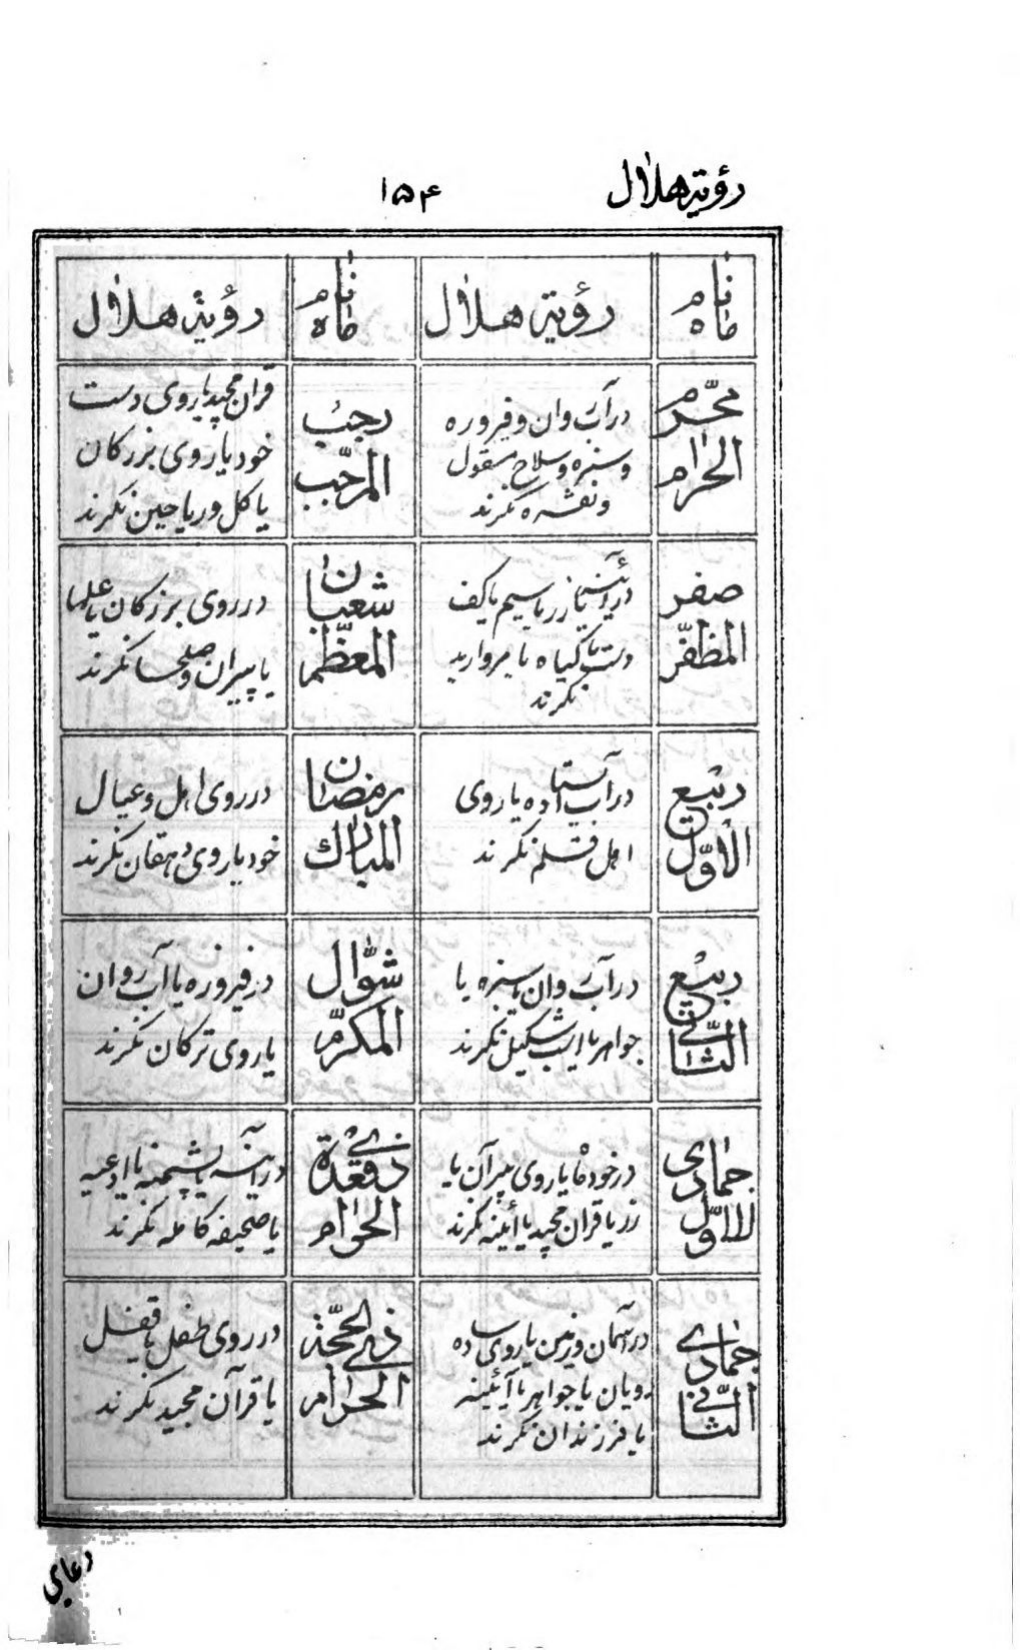 رؤية هلال
۱۵۴
نام ماه
رؤية هلال
نام ماه
رؤية هلال
محرّم
الحرام
در آب روان و فیروزه
و سبزه و سلاح مصقول
و نقره نگرند
رجب
المرجّب
قرآن مجید یا روی دست
خود یا روی بزرگان
یا گل و ریاحین نگرند
صفر
المظفّر
در آئینه یا زر یا سیم یا کف
دست یا گیاه یا مروارید
نگرند
شعبان
المعظّم
در روی بزرگان یا علما
یا پیران و صلحا نگرند
ربیع
الاوّل
در آب استاده یا روی
اهل قلم نگرند
رمضان
المبارك
در روی اهل و عیال
خود یا روی دهقان نگرند
ربیع
الثّانی
در آب روان یا سبزه یا
جواهر یا اسب شکیل نگرند
شوّال
المکرّم
در فیروزه یا آب روان
یا روی ترکان نگرند
جمادی
الاوّل
در خود یا روی پیران یا
زر یا قران مجید یا آئینه نگرند
ذی قعدة
الحرام
در آینه یا پشمینه یا ادعیه
یا صحیفه کامله نگرند
جمادی
الثّانی
در آسمان و زمین یا روی ساده
رویان یا جواهر یا آئینه
یا فرزندان نگرند
ذی الحجّة
الحرام
در روی طفل یا قفل
یا قرآن مجید نگرند
دعای